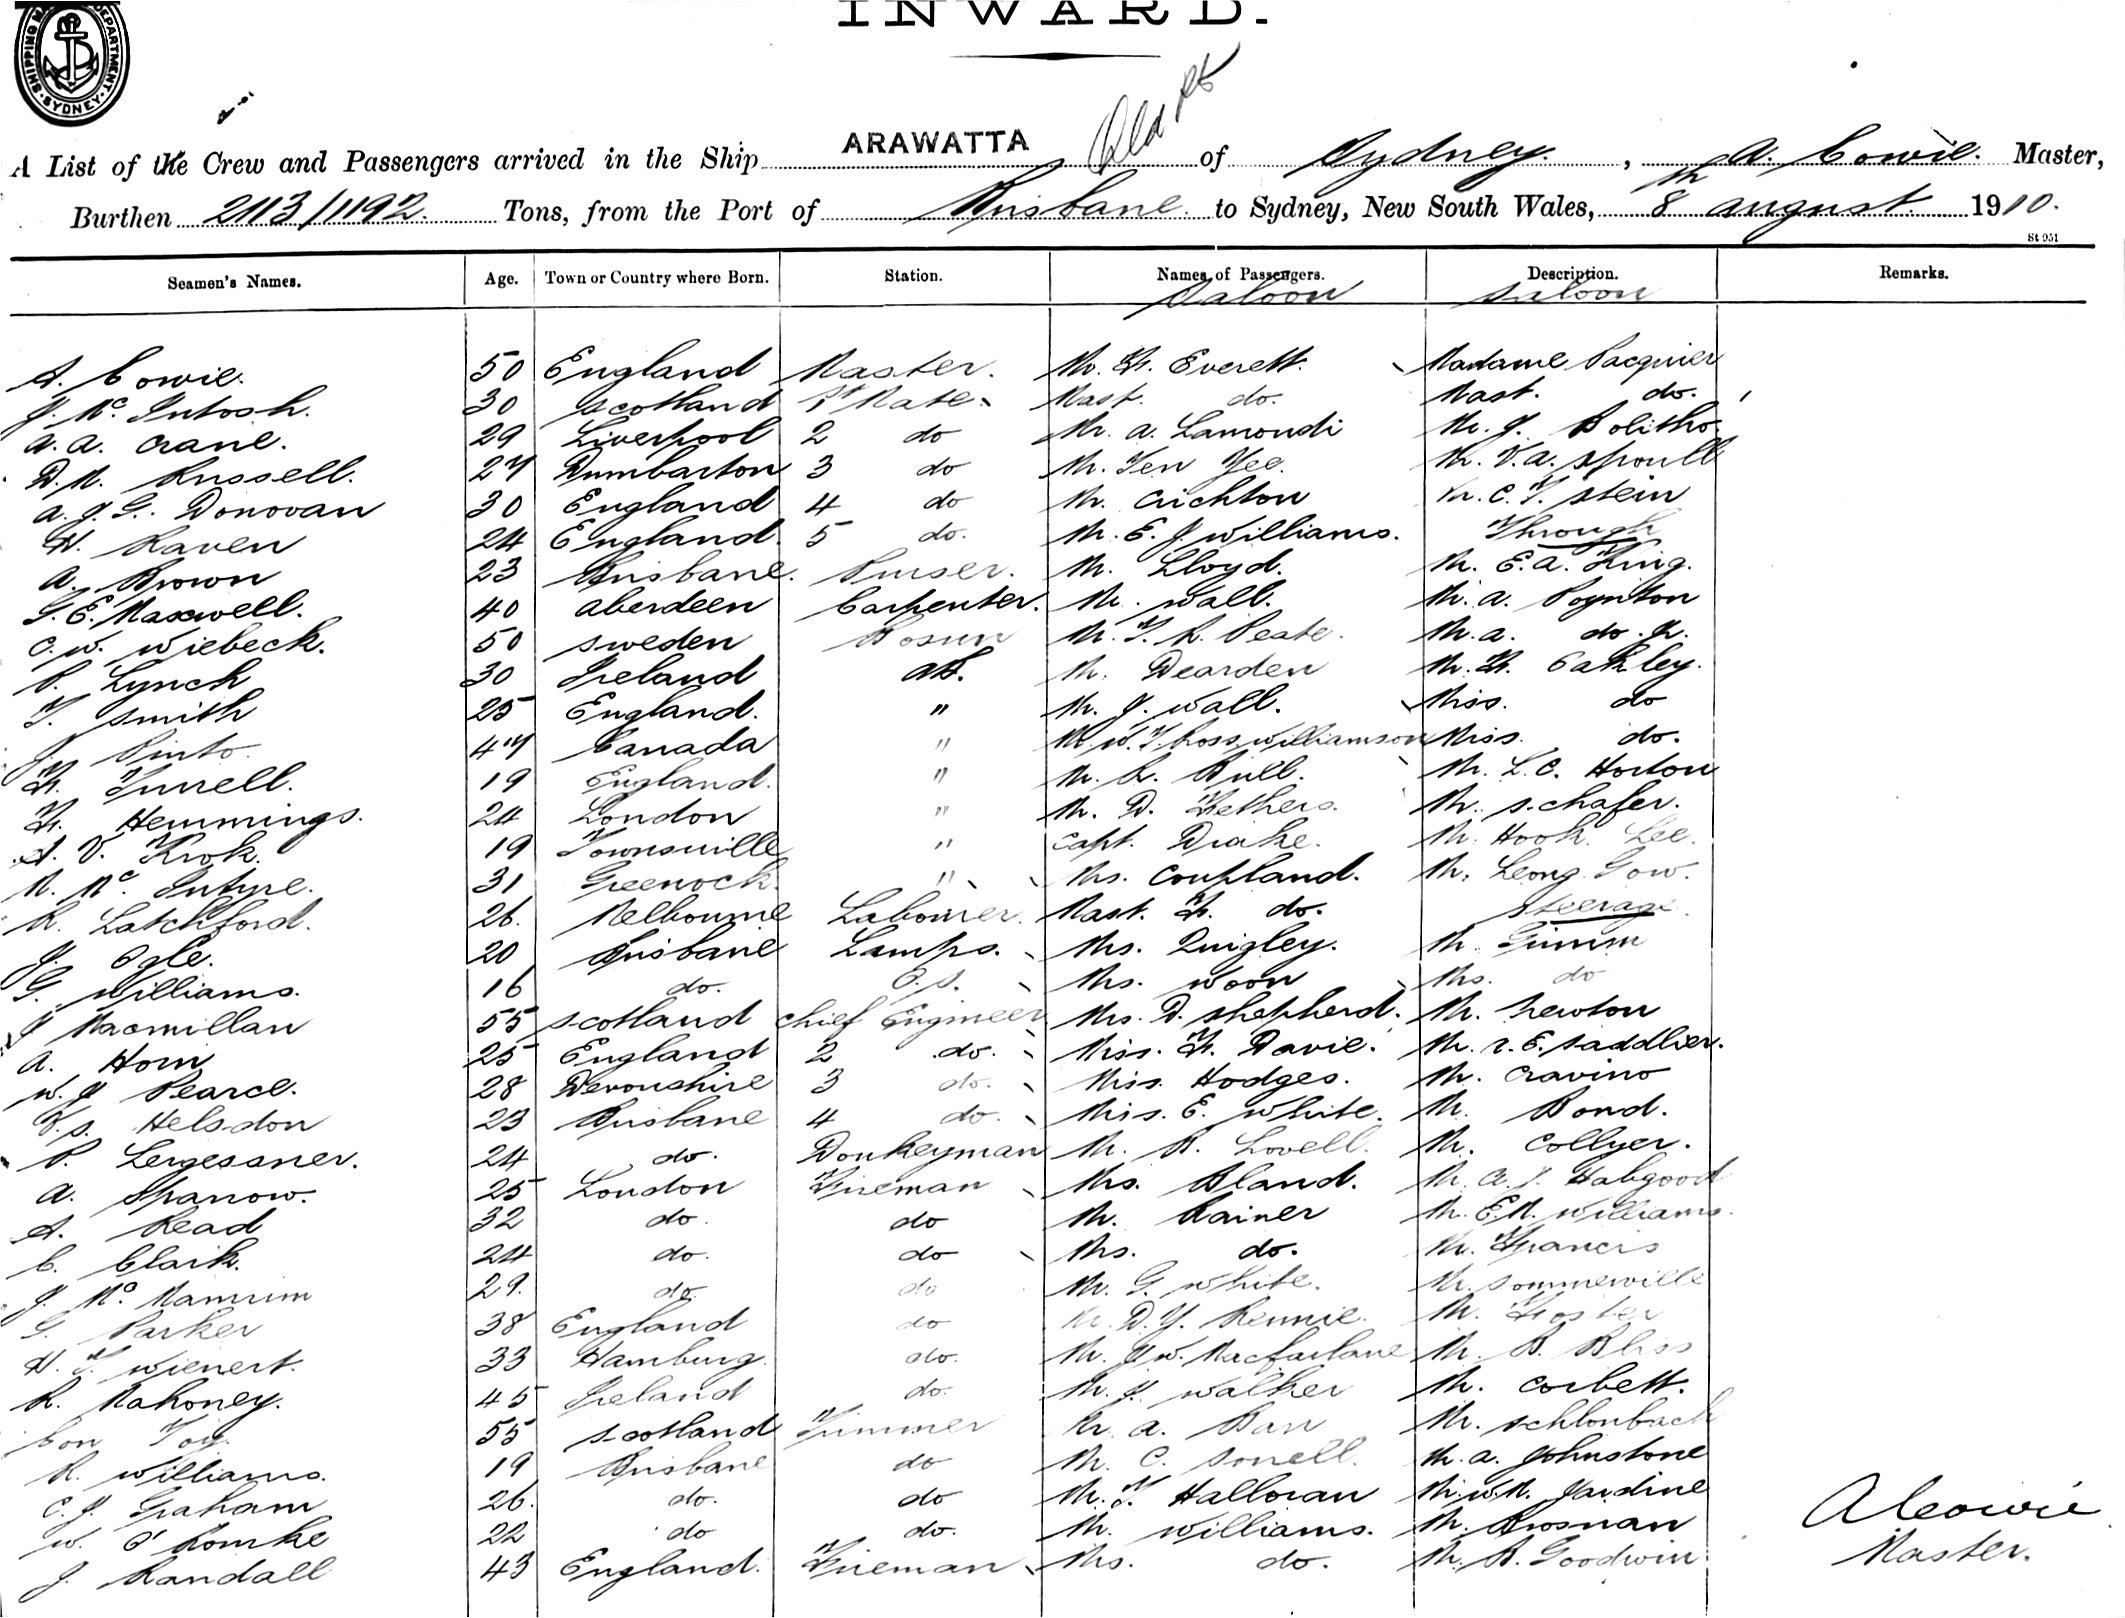 INWARD.
SHIPPING DEPARTMENT SYDNEY
A List of the Crew and Passengers arrived in the Ship ARAWATTA of Sydney, A. Cowie. Master,
Burthen 2113/1192. Tons, from the Port of Brisbane to Sydney, New South Wales, 8th August 1910.
St 951
Seamen's Names. Age. Town or Country where Born. Station. Names of Passengers. Description. Remarks.
Saloon Saloon
A. Cowie. 50 England Master. Mr. F. Everett. Madame Pacquier
J. Mc Intosh. 30 Scotland 1st Mate. Mast. do. Mast. do.
A. A. Crane. 29 Liverpool 2 do Mr. A. Lamondi Mr. J. Bolitho
D. M. Russell. 27 Dumbarton 3 do Mr. Yen Yee. Mr. V. A. Sproull
A. J. G. Donovan 30 England 4 do Mr. Crichton Mr. C. T. Stein
H. Raven 24 England. 5 do. Mr. E. J. Williams. Through
A. Brown 23 Brisbane. Purser. Mr. Lloyd. Mr. E. A. King.
G. E. Maxwell. 40 Aberdeen Carpenter. Mr. Wall. Mr. A. Poynton
C. W. Wiebeck. 50 Sweden Bosun Mr. T. R. Peate. Mr. A. do. Jr.
P. Lynch 30 Ireland AB. Mr. Dearden Mr. F. Oakley.
T. Smith 25 England. " Mr. J. Wall. Miss. do
J. Pinto. 47 Canada " Mr. W. T. Cross Williamson Miss. do.
F. Turrell. 19 England. " Mr. R. Bull. Mr. L. C. Horton
F. Hemmings. 24 London " Mr. D. Fethers. Mr. Schafer.
A. V. Krok. 19 Townsville " Capt. Drake. Mr. Hook Lee.
N. Mc Intyre. 31 Greenock. " Mrs. Coupland. Mr. Leong Gow.
R. Latchford. 26. Melbourne Labourer. Mast. F. do. Steerage.
J. Ogle. 20 Brisbane Lamps. Mrs. Quigley. Mr. Gimm
G. Williams. 16 do. O.S. Mrs. Woon Mrs. do
J Macmillan 55 Scotland Chief Engineer Mrs. D. Shepherd. Mr. Newton
A. Horn 25 England 2 do. Miss. F. Davie. Mr. R. E. Saddlier.
W. J Pearce. 28 Devonshire 3 do. Miss. Hodges. Mr. Cravino
S. Helsdon 23 Brisbane 4 do. Miss. E. White. Mr. Bond.
P. Lergessner. 24 do. Donkeyman Mr. R. Lovell. Mr. Collyer.
A. Sparrow. 25 London Fireman Mrs. Bland. Mr. A. J. Habgood
A. Read 32 do. do Mr. Rainer Mr. E. R. Williams.
C. Clark. 24 do. do Mrs. do. Mr. Francis
J. Mc Mamrim 29. do. do Mr. G. White. Mr. Sommerville
G. Parker 38 England do Mr. D. Y. Rennie. Mr. Foster
H. T. Wienert. 33 Hamburg. do. Mr. J W. Macfarlane Mr. B. Bliss
R. Mahoney. 45 Ireland do. Mr. J. Walker Mr. Corbett.
Con Foy. 55 Scotland Trimmer Mr. A. Barr Mr. Schlonbach
R. Williams. 19 Brisbane do Mr. C. Sorrell. Mr. A. Johnstone
C. J. Graham 26. do. do Mr. T. Halloran Mr. W. R. Jardine
W. O'Romke 22 do do. Mr. Williams. Mr. Brosnan
J. Randall 43 England. Fireman Mrs. do. Mr. B. Goodwin.
A Cowie
Master.